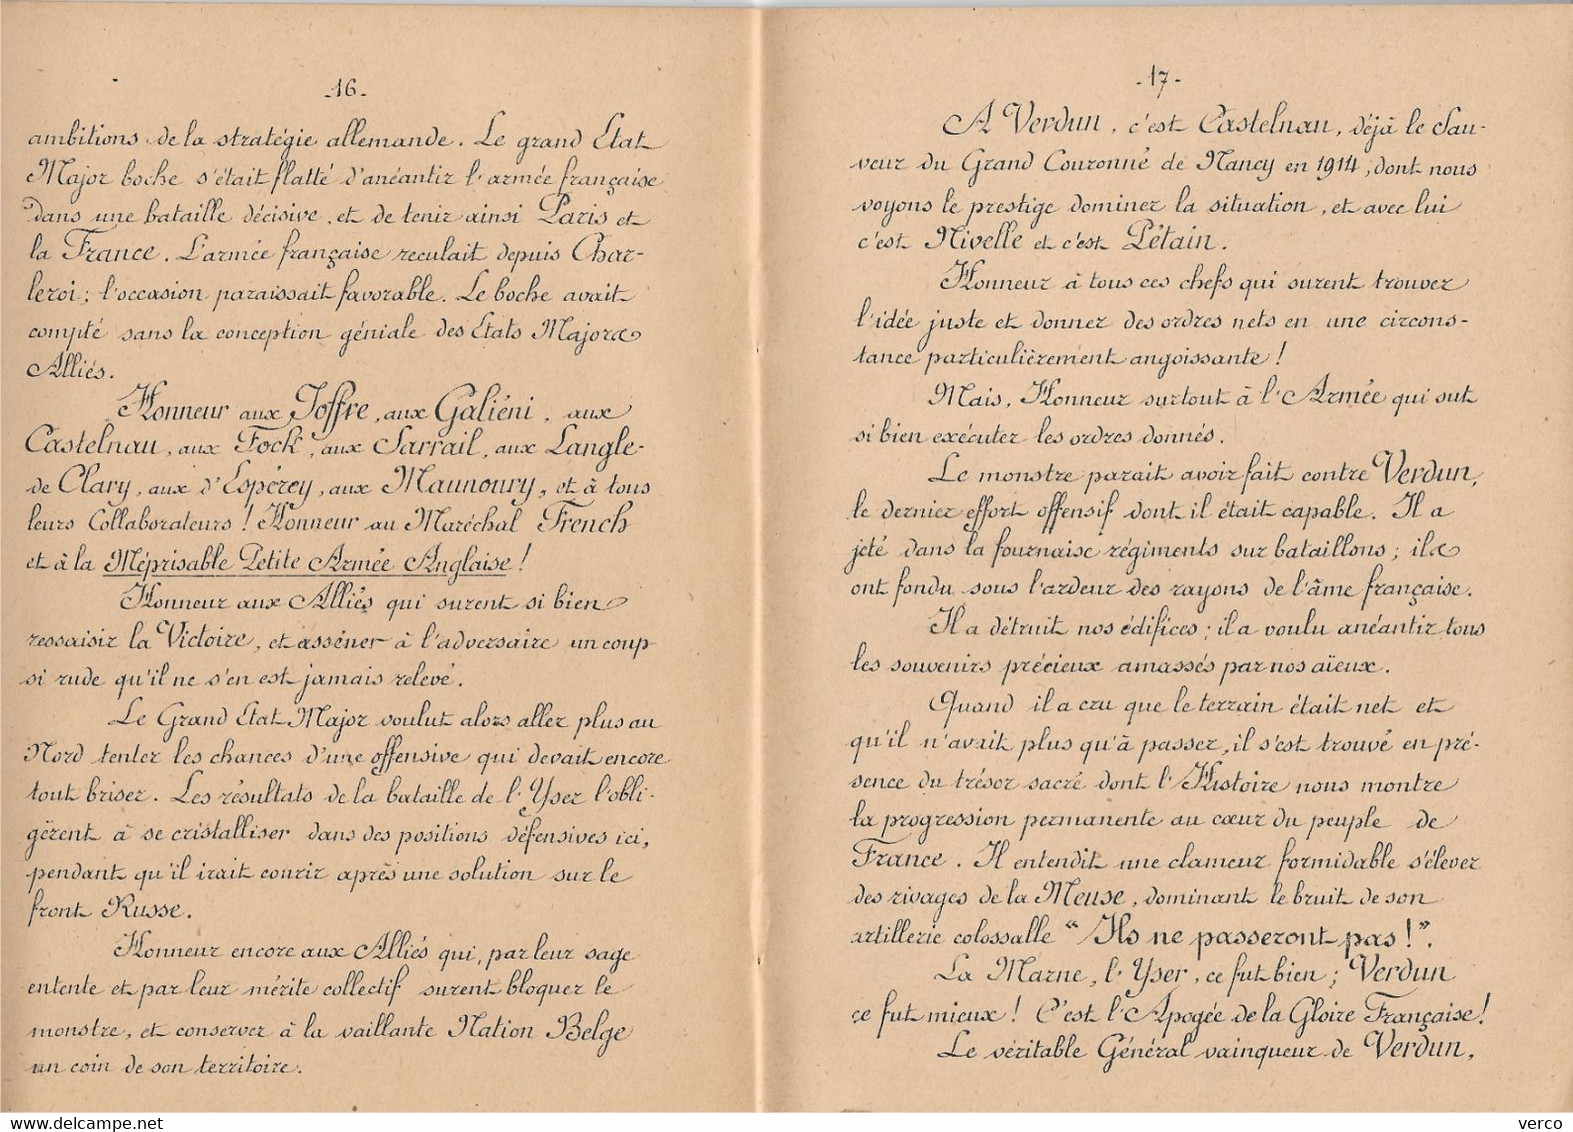 -16-
ambitions de la stratégie allemande. Le grand Etat
Major boche s'était flatté d'anéantir l'armée française
dans une bataille décisive, et de tenir ainsi Paris et
la France. L'armée française reculait depuis Char-
leroi; l'occasion paraissait favorable. Le boche avait
compté sans la conception géniale des Etats Majors
Alliés.
Honneur aux Joffre, aux Galiéni, aux
Castelnau, aux Fock, aux Sarrail, aux Langle-
de Clary, aux d'Espérey, aux Maunoury, et à tous
leurs Collaborateurs! Honneur au Maréchal French
et à la Méprisable Petite Armée Anglaise!
Honneur aux Alliés qui surent si bien
ressaisir la Victoire, et asséner à l'adversaire un coup
si rude qu'il ne s'en est jamais relevé.
Le Grand Etat Major voulut alors aller plus au
Nord tenter les chances d'une offensive qui devait encore
tout briser. Les résultats de la bataille de l'Yser l'obli-
gèrent à se cristalliser dans des positions défensives ici,
pendant qu'il irait courir après une solution sur le
front Russe.
Honneur encore aux Alliés qui, par leur sage
entente et par leur mérite collectif surent bloquer le
monstre, et conserver à la vaillante Nation Belge
un coin de son territoire.
-17-
A Verdun, c'est Castelnau, déjà le Sau-
veur du Grand Couronné de Nancy en 1914, dont nous
voyons le prestige dominer la situation, et avec lui
c'est Nivelle et c'est Pétain.
Honneur à tous ces chefs qui surent trouver
l'idée juste et donner des ordres nets en une circons-
tance particulièrement angoissante!
Mais, Honneur surtout à l'Armée qui sut
si bien exécuter les ordres donnés.
Le monstre parait avoir fait contre Verdun,
le dernier effort offensif dont il était capable. Il a
jeté dans la fournaise régiments sur bataillons; ils
ont fondu sous l'ardeur des rayons de l'âme française.
Il a détruit nos édifices; il a voulu anéantir tous
les souvenirs précieux amassés par nos aïeux.
Quand il a cru que le terrain était net et
qu'il n'avait plus qu'à passer, il s'est trouvé en pré-
sence du trésor sacré dont l'Histoire nous montre
la progression permanente au cœur du peuple de
France. Il entendit une clameur formidable s'élever
des rivages de la Meuse, dominant le bruit de son
artillerie colossalle "Ils ne passeront pas!".
La Marne, l'Yser, ce fut bien; Verdun
ce fut mieux! C'est l'Apogée de la Gloire Française!
Le véritable Général vainqueur de Verdun,
verco